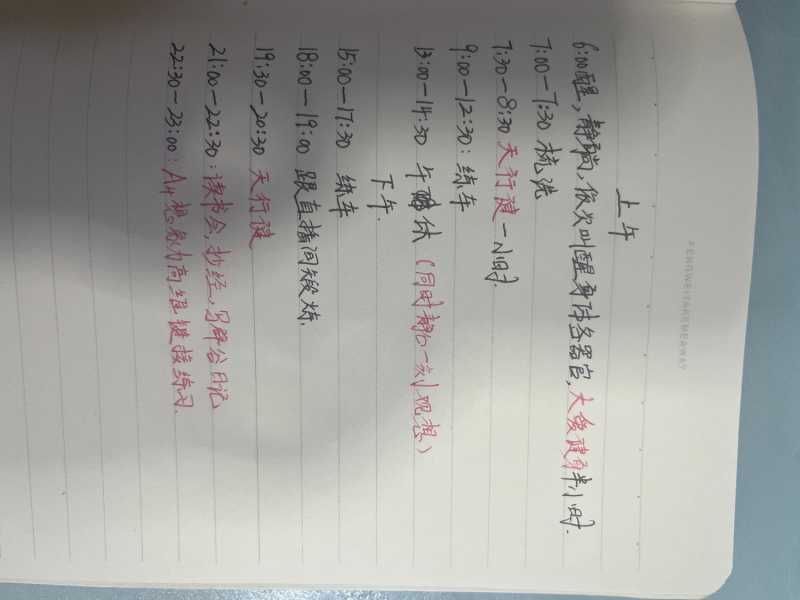 上午
6:00醒，静躺，依次叫醒身体各器官，大爱健身半小时.
7:00-7:30 梳洗
7:30-8:30 天行健一小时.
9:00-12:30：练车
13:00-14:30 午休（同时静心一刻观想）
下午.
15:00-17:30 练车
18:00-19:00 跟直播间锻炼.
19:30-20:30 天行健
21:00-22:30：读书会，抄经，写辟谷日记
22:30-23:00：高维链接练习.